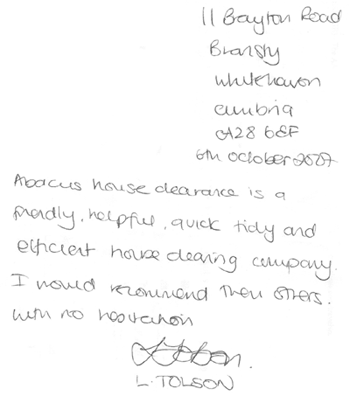 11 Brayton Road
Bransty
Whitehaven
Cumbria
CA28 6EF
6th October 2007
Abacus house clearance is a
friendly, helpful, quick tidy and
efficient house clearing company.
I would recommend them others.
with no hesitation
L. TOLSON